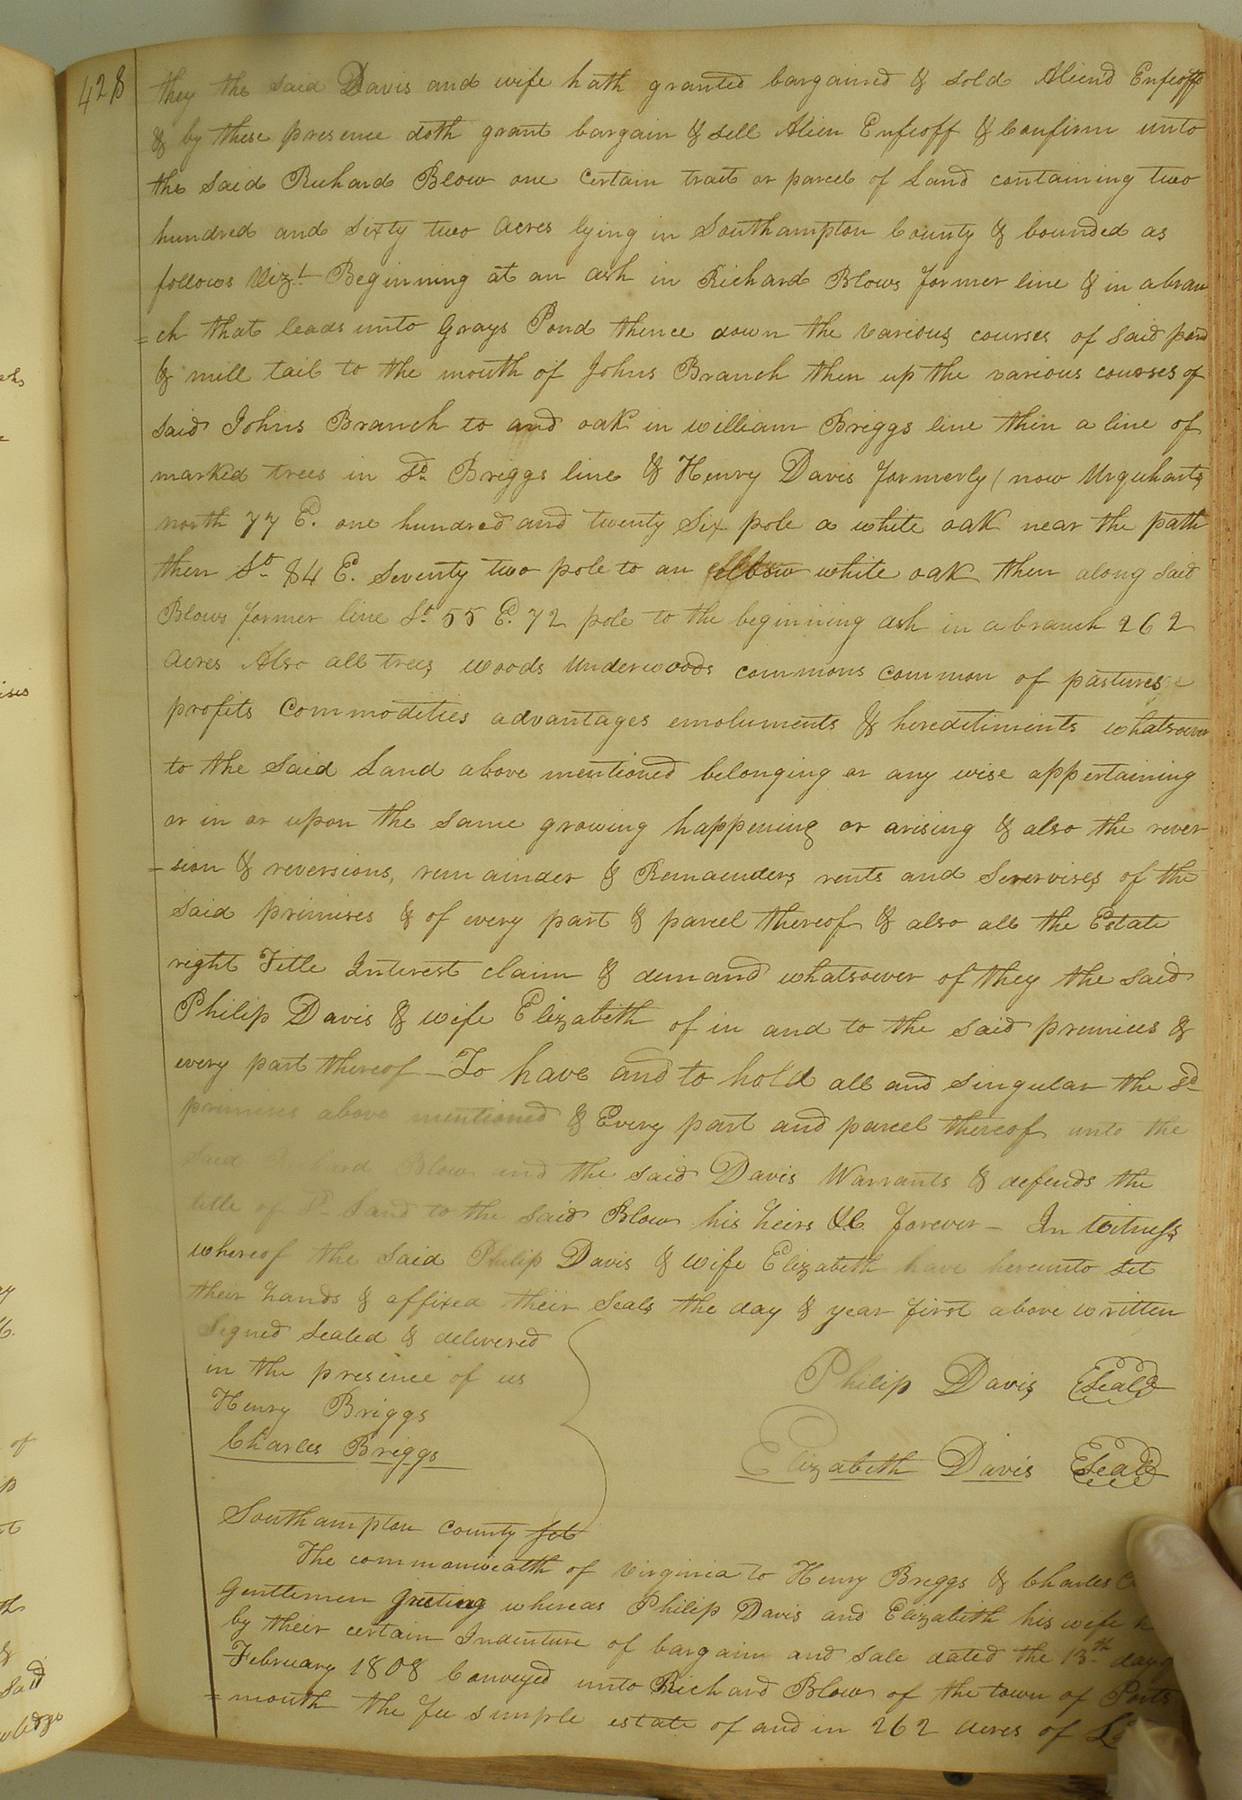 428
they the said Davis and wife hath granted bargained & sold Aliend Enfeoff
& by these presence doth grant bargain & sell Alien Enfeoff & Confirm unto
the said Richard Blow one Certain tract or parcel of Land containing two
hundred and sixty two acres lying in Southampton County & bounded as
follows Vizt Beginning at an ash in Richard Blows former line & in a bran
=ch that leads unto Grays Pond thence down the various courses of said pond
& mill tail to the mouth of Johns Branch then up the various courses of
said Johns Branch to and oak in william Briggs line then a line of
marked trees in sd. Briggs line & Henry Davis formerly (now Urquharts
north 77 E. one hundred and twenty six pole a white oak near the path
then So. 84 E. seventy two pole to an elbow white oak then along said
Blows former line So. 55 E. 72 pole to the beginning ash in a branch 262
acres Also all trees woods underwoods commons common of pastures
profits Commodities advantages emoluments & hereditiments whatsoever
to the said Land above mentioned belonging or any wise appertaining
or in or upon the same growing happening or arising & also the rever
=sion & reversions, remainder & Remaenders rents and Serervises of the
said primises & of every part & parcel thereof & also all the Estate
right Title Interest claim & demand whatsoever of they the said
Philip Davis & wife Elizabeth of in and to the said premices &
every part thereof – To have and to hold all and singular the sd
premises above mentioned & Every part and parcel thereof unto the
said Richard Blow and the said Davis Warrants & defends the
title of sd. Land to the said Blow his heirs &C. forever – In Witness
whereof the said Philip Davis & wife Elizabeth have hereunto set
their hands & affixed their seals the day & year first above written
Signed sealed & delivered
in the presence of us
Henry Briggs
Charles Briggs
Philip Davis Seal
Elizabeth Davis Seal
Southampton county
The commonwealth of Virginia to Henry Briggs & Charles
Gentlemen Greeting whereas Philip Davis and Elizabeth his wife
by their certain Indenture of bargain and sale dated the 13th day
February 1808 Conveyed unto Richard Blow of the town of Ports
=mouth the fee simple estate of and in 262 acres of